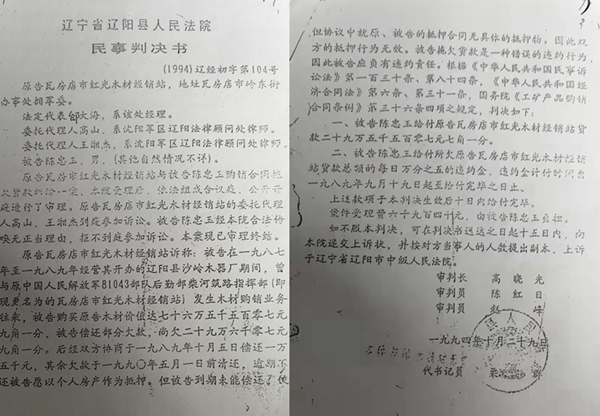 辽宁省辽阳县人民法院
民事判决书
(1994)辽经初字第104号
原告瓦房店市红光木材经销站，地址瓦房店市岭东街
办事处拥军委。
法定代表邹大海，系该处经理。
委托代理人高山，系沈阳军区辽阳法律顾问处律师。
委托代理人王淑杰，系沈阳军区辽阳法律顾问处律师。
被告陈忠玉，男，(其他自然情况不详)。
原告瓦房店市红光木材经销站与被告陈忠玉购销合同拖
欠货款纠纷一案，本院受理后，依法组成合议庭，公开开
庭进行了审理。原告瓦房店市红光木材经销站的委托代理
人高山，王淑杰到庭参加诉讼。被告陈忠玉经本院合法传
唤无正当理由，拒不到庭参加诉讼。本案现已审理终结。
原告瓦房店市红光木材经销站诉称：被告在一九八七
年至一九八九年经营其开办的辽阳县沙岭木器厂期间，曾
与原中国人民解放军81043部队后勤部柴河筑路指挥部(即
现更名为的瓦房店市红光木材经销站)发生木材购销业务
往来，被告购买原告木材价值达七十六万五千五百零七元
九角一分，被告偿还部分欠款，尚欠二十九万六千零七元
九角一分。后经双方协商于一九八九年十月五日偿还一万
五千元，其余欠款于一九九〇年五月一日前清还，逾期不
还被告愿以个人房产作为抵押。但被告到期未能偿还了
但协议中就原、被告的抵押合同无具体的抵押物，因此双
方的抵押行为无效。被告拖欠货款是一种错误的违约行为，
因此被告应负有违约责任。根据《中华人民共和国民事诉
讼法》第一百三十条、第八十四条，《中华人民共和国经
济合同法》第六条、第三十一条，国务院《工矿产品购销
合同条例》第三十六条四项之规定，判决如下：
一、被告陈忠玉给付原告瓦房店市红光木材经销站货
款二十九万五千五百零七元九角一分。
二、被告陈忠玉给付所欠原告瓦房店市红光木材经销
站货款总额的每日万分之五的违约金，违约金计付时间由
一九八九年九月十九日起至给付完毕之日止。
上述款项于本判决生效后十日内给付完毕。
案件受理费六千九百四十元，由被告陈忠玉负担。
如不服本判决，可在判决书送达之日起十五日内，向
本院递交上诉状，并按对方当事人的人数提出副本，上诉
于辽宁省辽阳市中级人民法院。
审判长 高晓光
审判员 陈红日
审判员 赵峰
一九九四年十月二十九日
代书记员